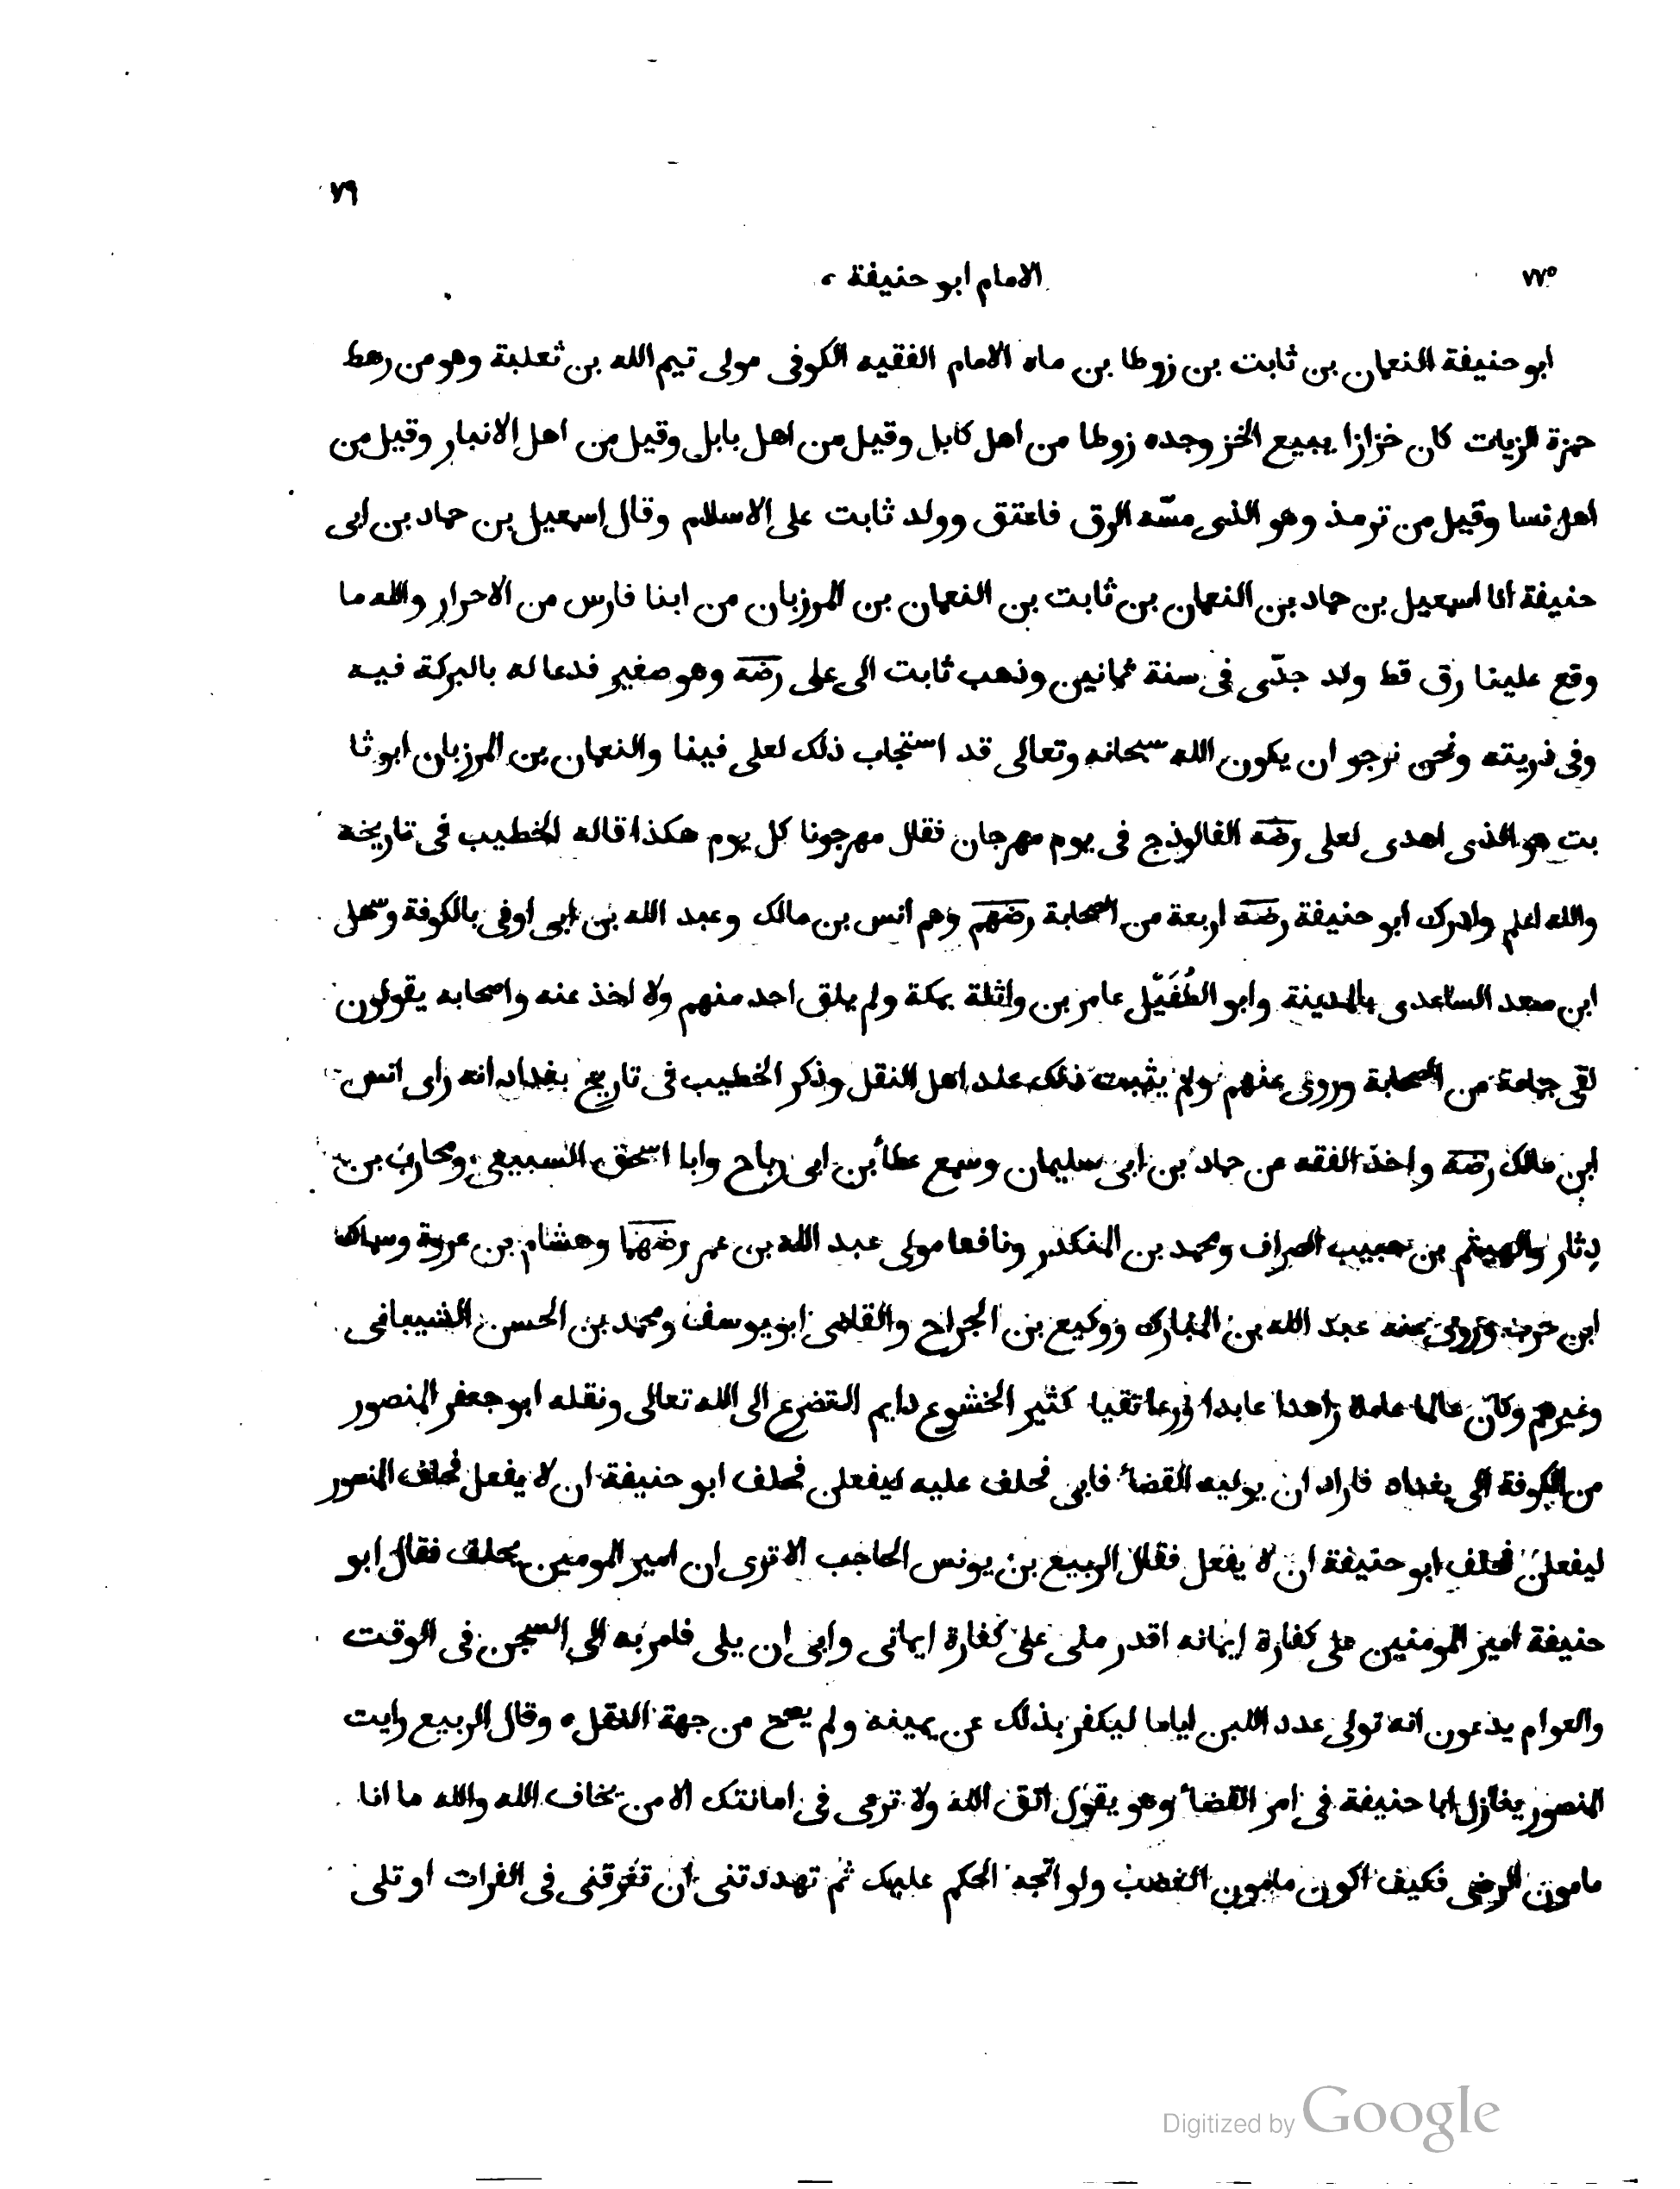 ٧٩
٧٧٥
الامام ابو حنيفة ،
ابو حنيفة النعمان بن ثابت بن زوطا بن ماه الامام الفقيه الكوفى مولى تيم الله بن ثعلبة وهو من رهط
حمزة الزيات كان خزازا يبيع الخز وجده زوطا من اهل كابل وقيل من اهل بابل وقيل من اهل الانبار وقيل من
اهل نسا وقيل من ترمذ وهو الذى مسّه الرق فاعتق وولد ثابت على الاسلام وقال اسمعيل بن حماد بن ابى
حنيفة انا اسمعيل بن حماد بن النعمان بن ثابت بن النعمان بن المرزبان من ابنا فارس من الاحرار والله ما
وقع علينا رق قط ولد جدّى فى سنة ثمانين وذهب ثابت الى على رضه وهو صغير فدعا له بالبركة فيه
وفى ذريته ونحن نرجو ان يكون الله سبحانه وتعالى قد استجاب ذلك لعلى فينا والنعمان بن المرزبان ابو ثا
بت هو الذى اهدى لعلى رضه الفالوذج فى يوم مهرجان فقال مهرجونا كل يوم هكذا قاله الخطيب فى تاريخه
والله اعلم وادرك ابو حنيفة رضه اربعة من الصحابة رضهم وهم انس بن مالك وعبد الله بن ابى اوفى بالكوفة وسهل
ابن سعد الساعدى بالمدينة وابو الطُفَيّل عامر بن واثلة بمكة ولم يلق احد منهم ولا اخذ عنه واصحابه يقولون
لقى جماعة من الصحابة وروى عنهم ولم يثبت ذلك عند اهل النقل وذكر الخطيب فى تاريخ بغداد انه راى انس
ابن مالك رضه واخذ الفقه عن حماد بن ابى سليمان وسمع عطأ بن ابى رباح وابا اسحق السبيعى ومحارب بن
دِثار والهيثم بن حبيب الصراف ومحمد بن المنكدر ونافعا مولى عبد الله بن عمر رضهما وهشام بن عروة وسماك
ابن حرب وروى عنه عبد الله بن المبارك ووكيع بن الجراح والقاضى ابو يوسف ومحمد بن الحسن الشيبانى
وغيرهم وكان عالما عاملا زاهدا عابدا ورعا تقيا كثير الخشوع دايم التضرع الى الله تعالى ونقله ابو جعفر المنصور
من الكوفة الى بغداد فاراد ان يوليه القضأ فابى فحلف عليه ليفعلن فحلف ابو حنيفة ان لا يفعل فحلف المنصور
ليفعلن فحلف ابو حنيفة ان لا يفعل فقال الربيع بن يونس الحاجب الا ترى ان امير المومنين يحلف فقال ابو
حنيفة امير المومنين على كفارة ايمانه اقدر منى على كفارة ايمانى وابى ان يلى فامر به الى السجن فى الوقت
والعوام يدعون انه تولى عدد اللبن اياما ليكفر بذلك عن يمينه ولم يصح من جهة النقل ٥ وقال الربيع رايت
المنصور ينازل ابا حنيفة فى امر القضأ وهو يقول اتق الله ولا ترعى فى امانتك الا من يخاف الله والله ما انا
مامون الرضى فكيف اكون مامون الغضب ولو اتجه الحكم عليك ثم تهددتنى ان تغرقنى فى الفرات او تلى
Digitized by Google